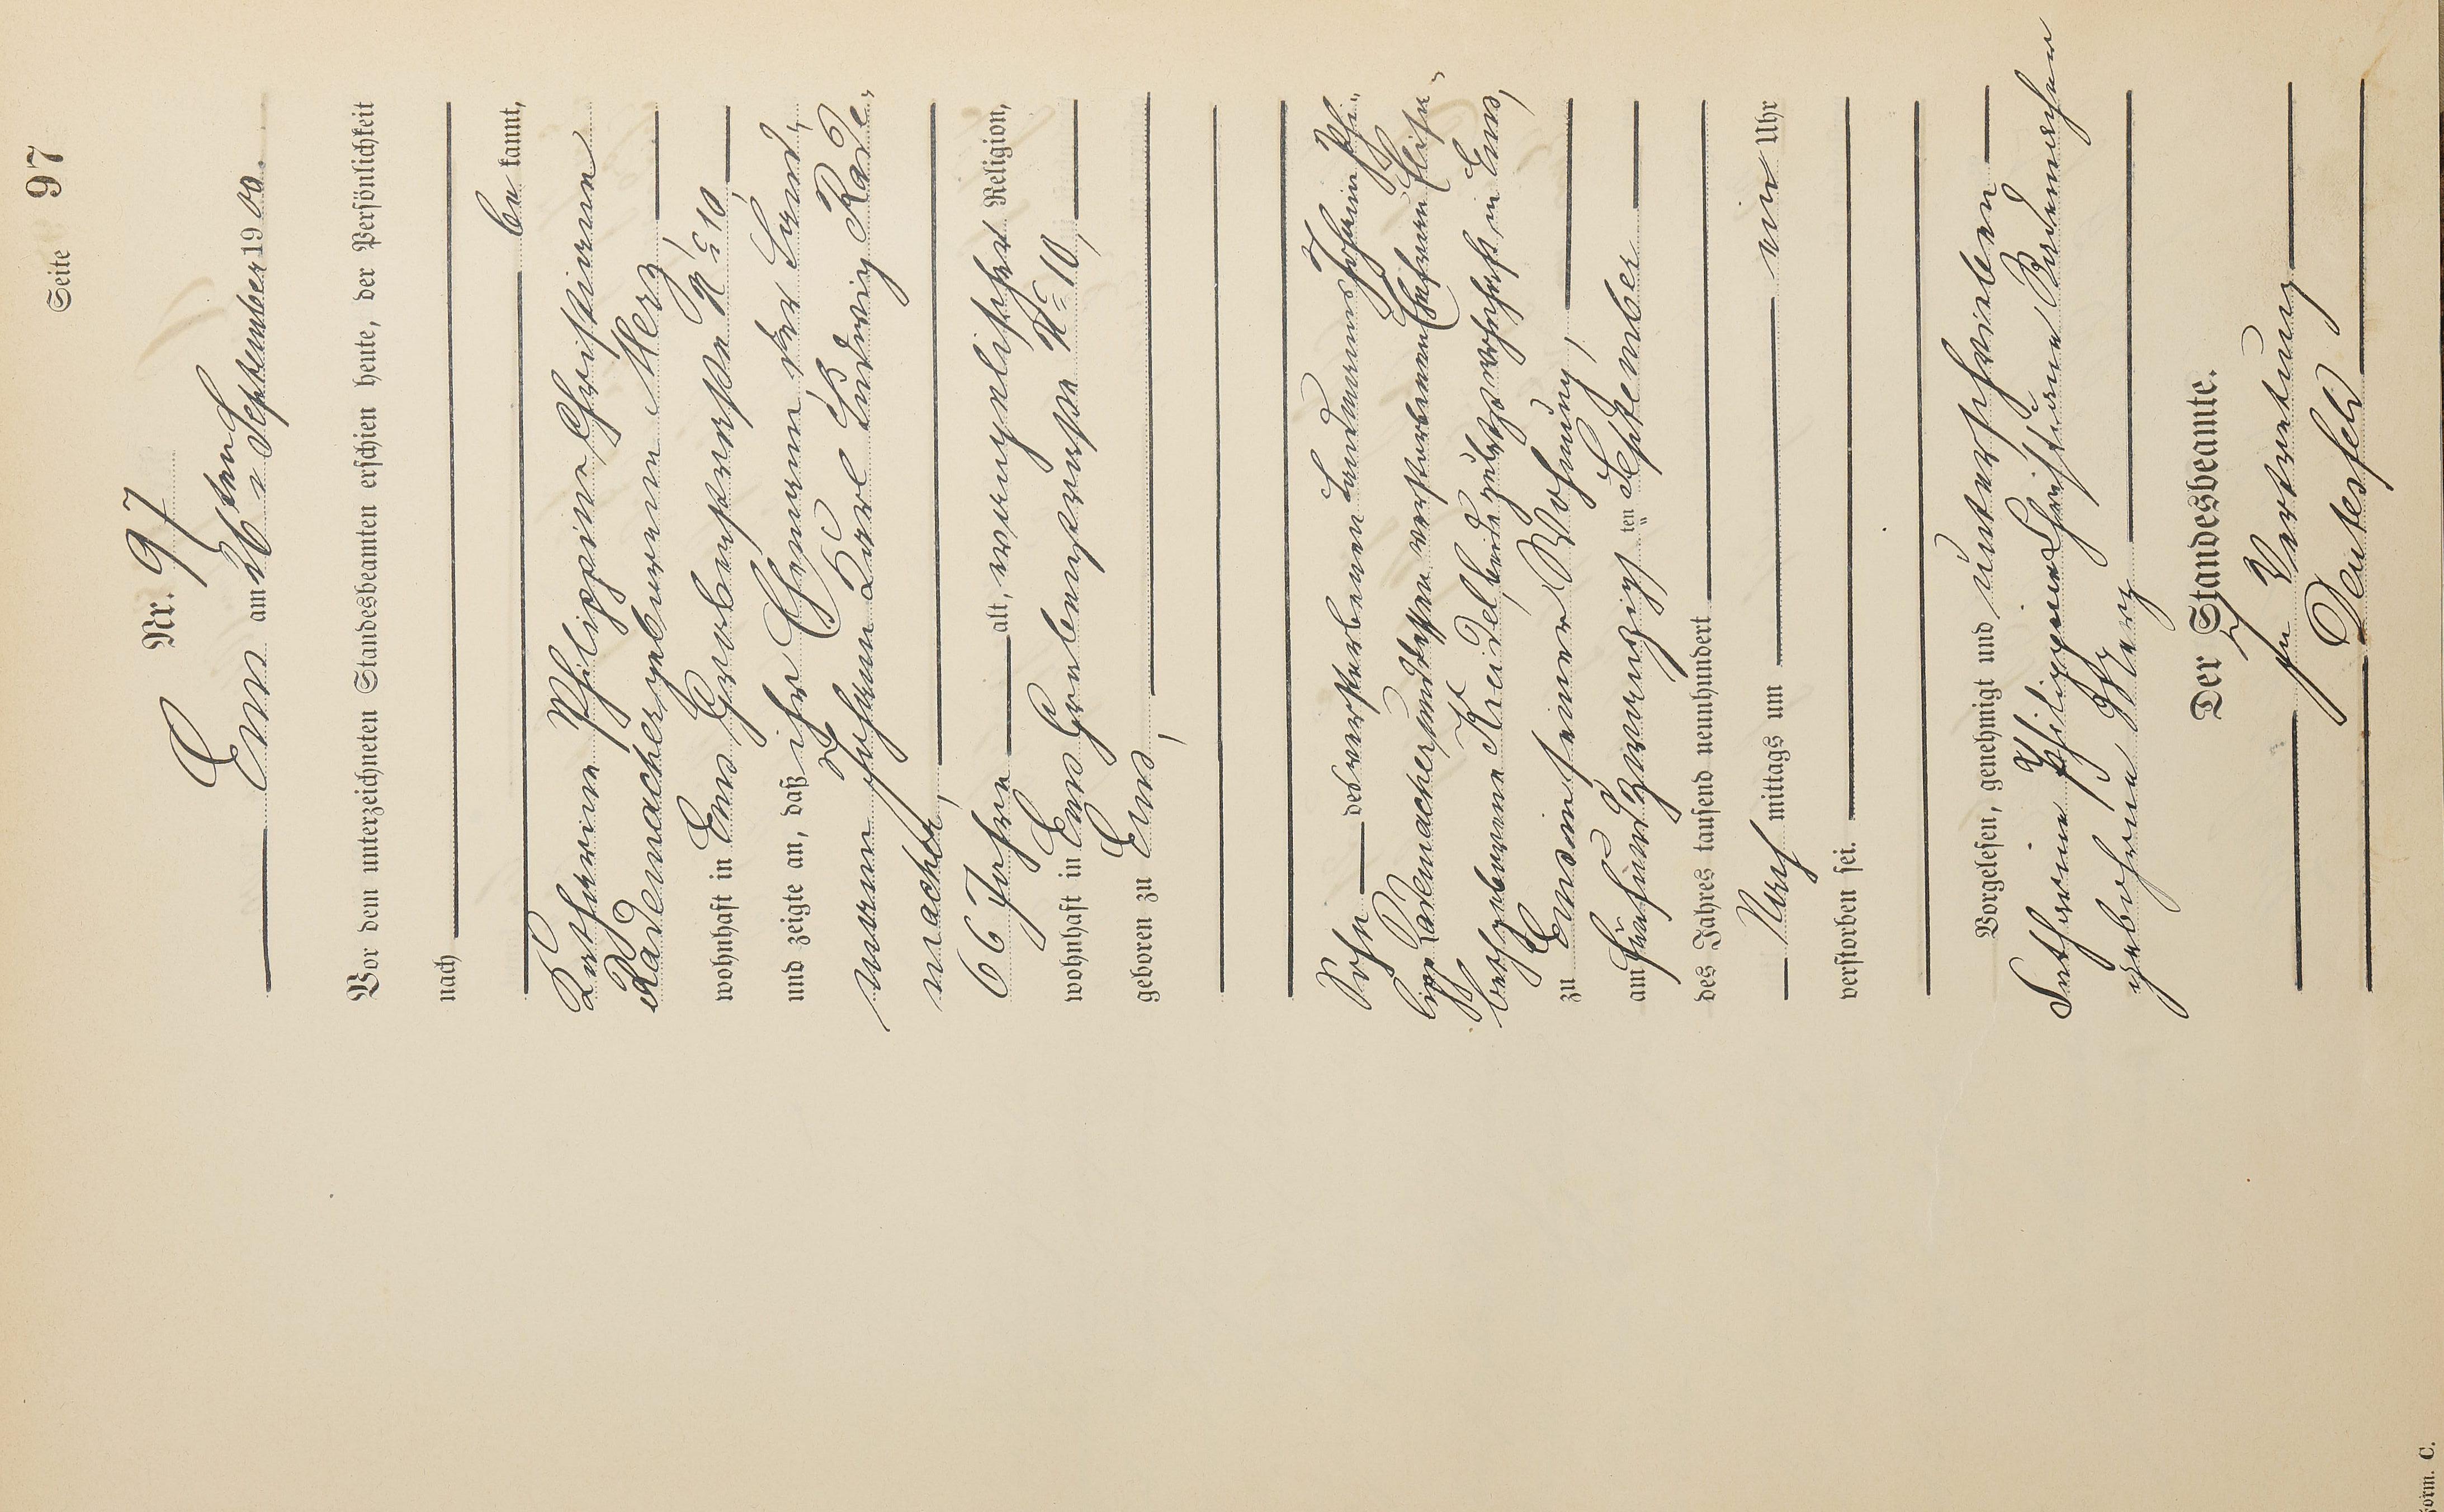 Seite 97
Nr. 97
Ems am 26ten September 1900.
Vor dem unterzeichneten Standesbeamten erschien heute, der Persönlichkeit
nach
be kannt,
Katharine Philippine Christiane
Rademacher geborene Merz,
wohnhaft in Ems Grabenstraße No 10,
und zeigte an, daß ihr Ehemann, der Land-
mann Johann Karl Ludwig Rade-
macher,
66 Jahre alt, evangelischer Religion,
wohnhaft in Ems Grabenstraße No 10,
geboren zu Ems,
Sohn des verstorbenen Landmanns Johann Phi-
lipp Rademacher und dessen verstorbenen Ehefrau Elisa-
beth geborene Kreidel, beide zuletzt wohnhaft in Ems,
zu Ems in seiner Wohnung,
am fünfundzwanzigsten September
des Jahres tausend neunhundert
Nach mittags um ein Uhr
verstorben sei.
Vorgelesen, genehmigt und unterschrieben
Katharine Philippine Christiane Rademacher
geborene Merz
Der Standesbeamte.
In Vertretung
Deutesfeld
Form. C.